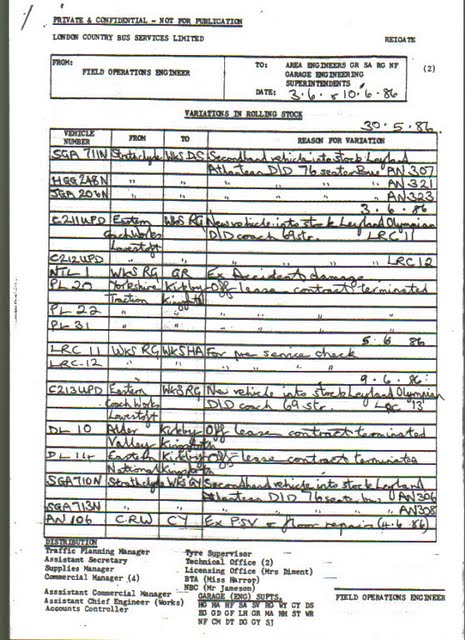 PRIVATE & CONFIDENTIAL - NOT FOR PUBLICATION
LONDON COUNTRY BUS SERVICES LIMITED REIGATE
FROM: FIELD OPERATIONS ENGINEER
TO: AREA ENGINEERS GR SA RG NF (2)
GARAGE ENGINEERING
SUPERINTENDENTS
DATE: 3.6. & 10.6.86
VARIATIONS IN ROLLING STOCK
30.5.86
VEHICLE NUMBER FROM TO REASON FOR VARIATION
SGA 711N Strathclyde WKS DS Secondhand vehicle into stock Leyland
Atlantean D/D 76 seater Bus AN307
HGG 248N " " " " AN321
JGA 208N " " " " AN323
3.6.86
C211UPD Eastern WKS RG New vehicle into stock Leyland Olympian
Coachworks D/D coach 69 str. LRC 11
Lowestoft
C212UPD " " " " LRC 12
NTL 1 WKS RG GR Ex Accident damage
PL 20 Yorkshire Kirkby Off lease - contract terminated
Traction Kingsth
PL 22 " " " "
PL 31 " " " "
5.6.86
LRC 11 WKS RG WKS HA For pre service check
LRC-12 " " "
9.6.86
C213UPD Eastern WKS RG New vehicle into stock Leyland Olympian
Coach Works D/D coach 69 str. LRC '13'
Lowestoft
DL 10 Alder Kirkby Off lease contract terminated
Valley Kingsth
PL 14 Eastern Kirkby Off lease contract terminated
National Kingsth
SGA710N Strathclyde WKS GY Secondhand vehicle into stock Leyland
Atlantean D/D 76 seater bus AN306
SGA713N " " " " AN308
AN 106 CRW CY Ex PSV & floor repairs (4.6.86)
DISTRIBUTION
Traffic Planning Manager Tyre Supervisor
Assistant Secretary Technical Office (2)
Supplies Manager Licensing Office (Mrs Diment)
Commercial Manager (4) BTA (Miss Harrop)
NBC (Mr Jameson)
Assistant Commercial Manager GARAGE (ENG) SUPTS.
Assistant Chief Engineer (Works) HG HA HF SA SV RG WY CY DS
Accounts Controller EG GD GF LH GR MA HH ST WR
NF CM DT DG GY SJ
FIELD OPERATIONS ENGINEER